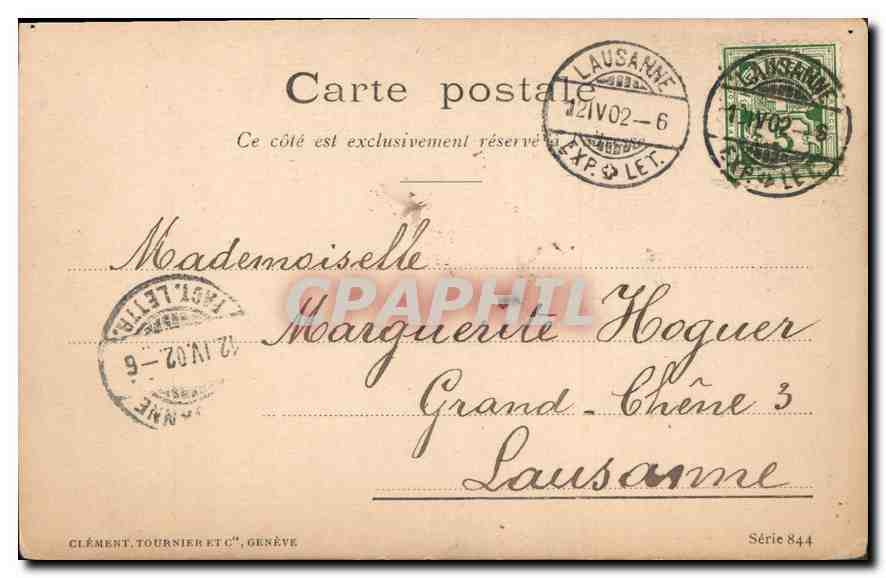 Carte postale
Ce côté est exclusivement réservé
LAUSANNE
12.IV.02–6
EXP. LET.
LAUSANNE
12.IV.02–6
EXP. LET.
5
Mademoiselle
Marguerite Hoguer
Grand-Chêne 3
Lausanne
CRAPHIL
FACT. LETTR.
12.IV.02–6
CLÉMENT, TOURNIER ET Cie, GENÈVE
Série 844